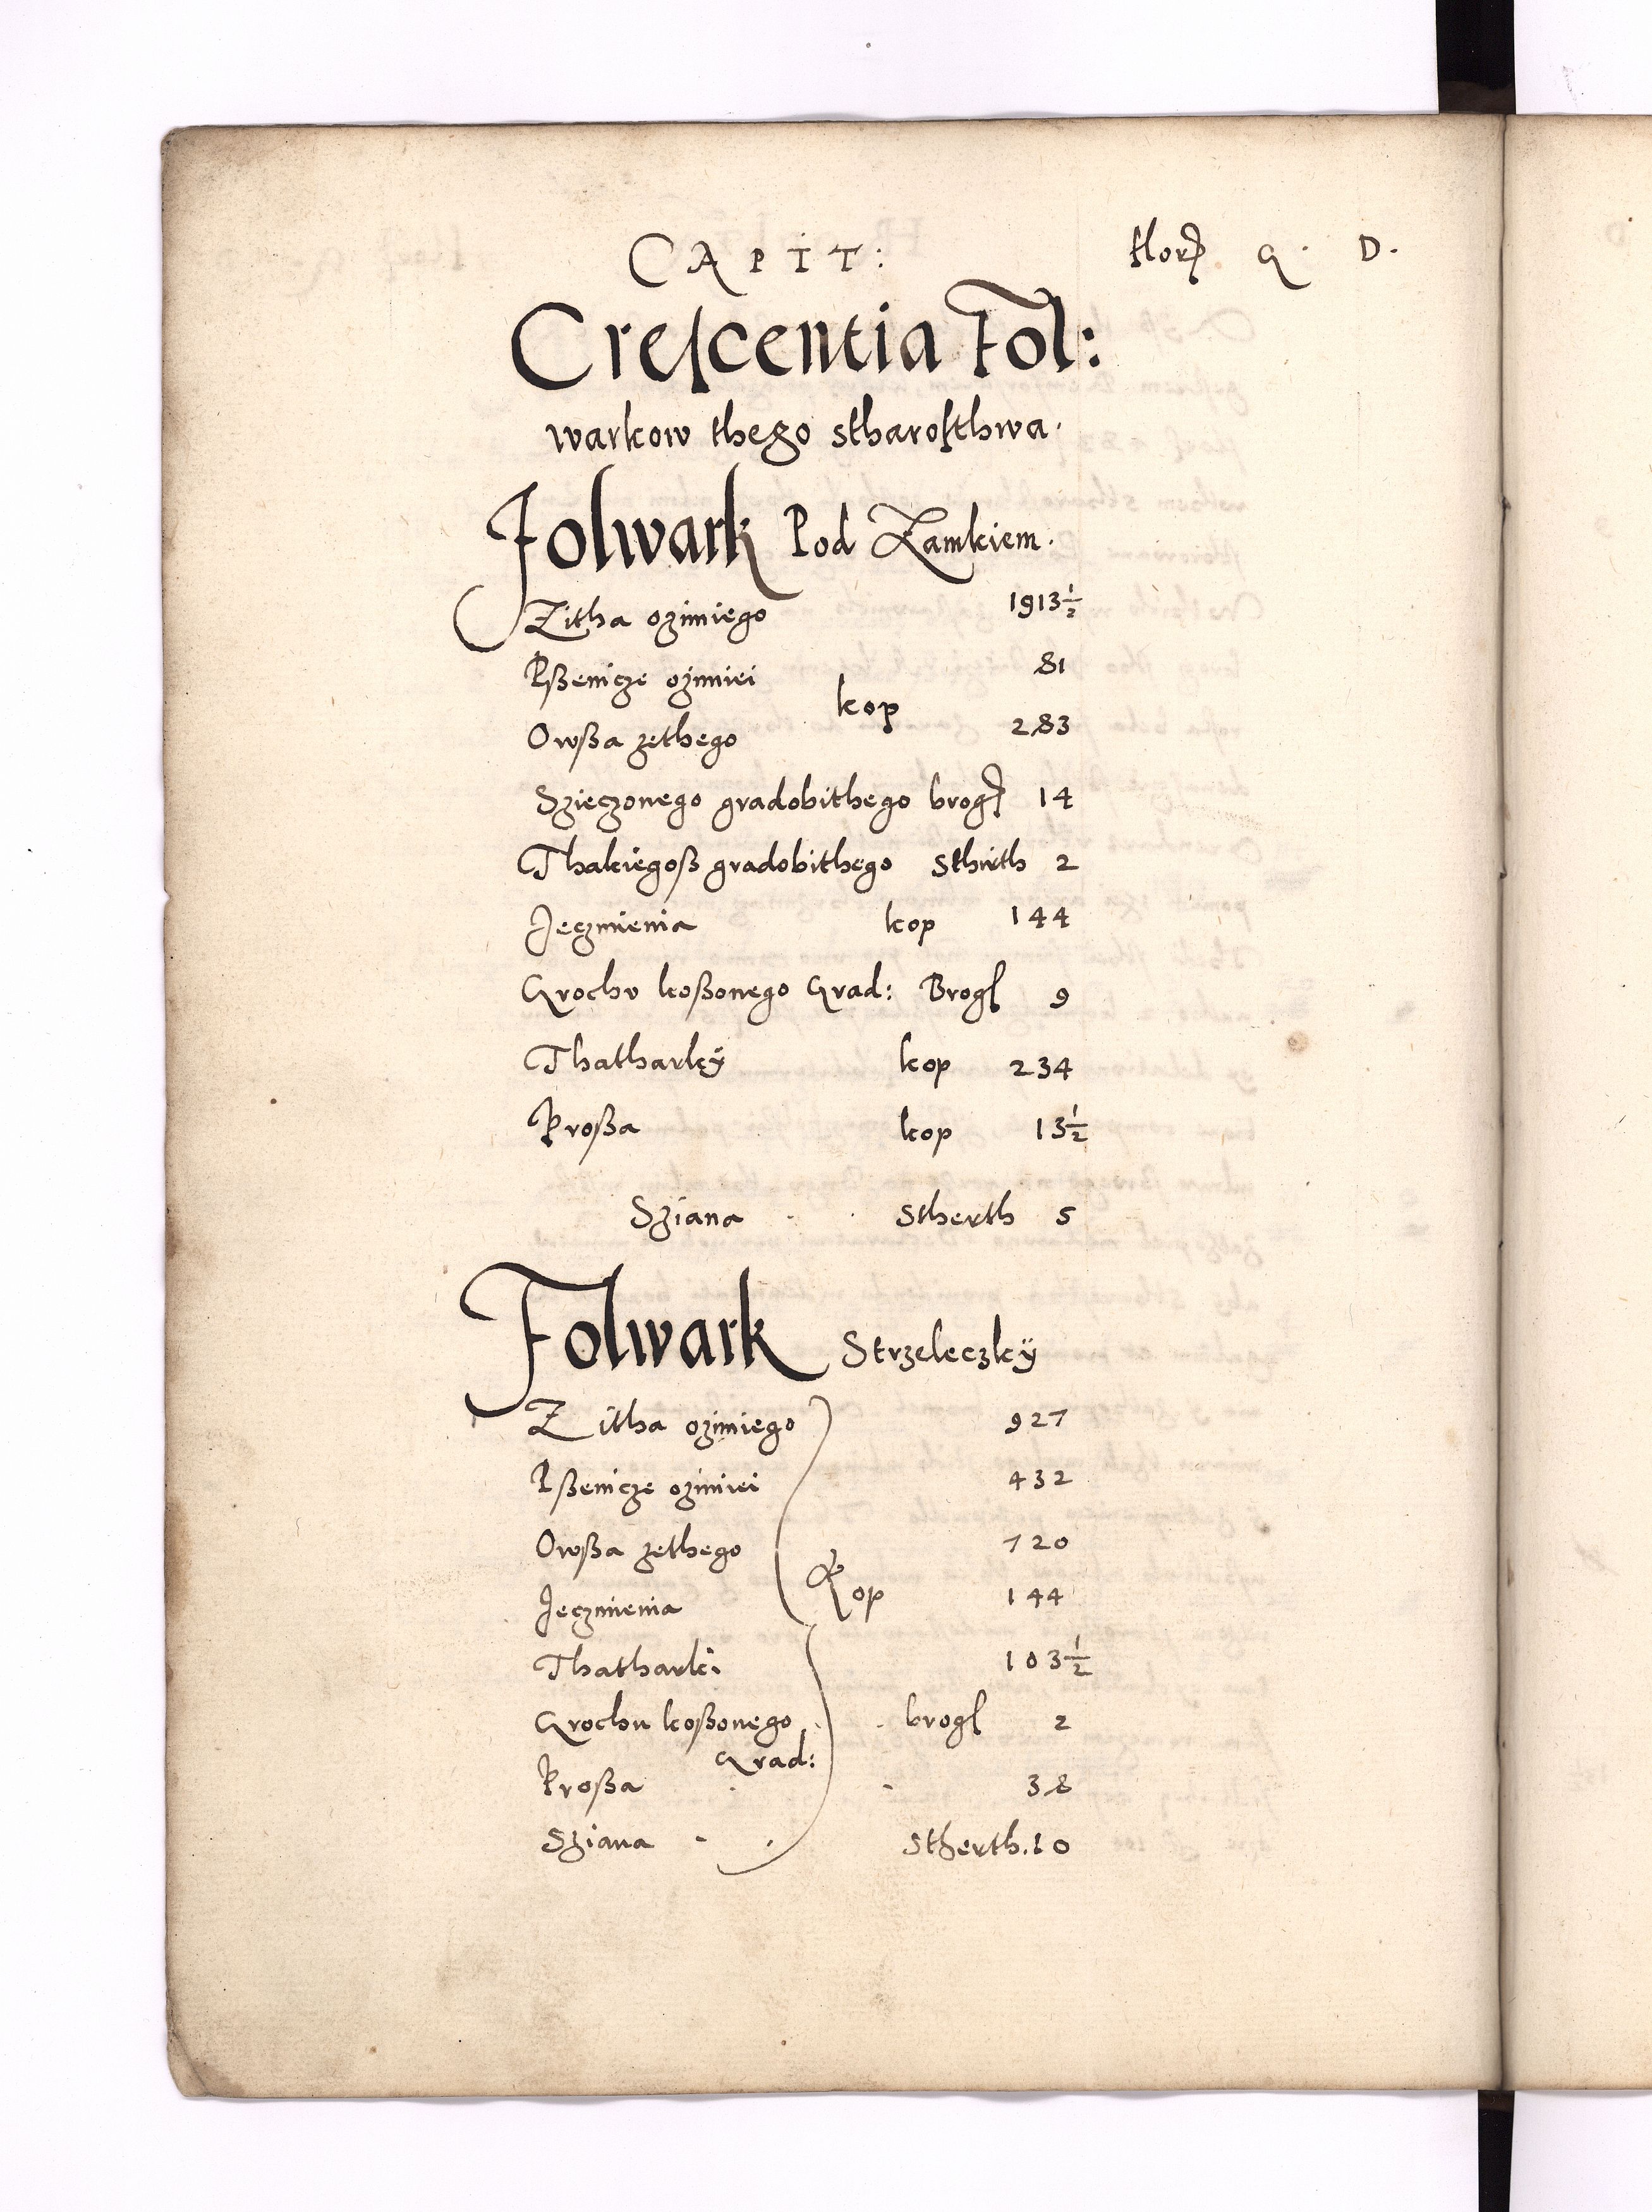 CAPIT: flor G. D.
Creſcentia Fol:
warkow thego stharoſthwa.
Folwark Pod Zamkiem.
Zitha ozimiego 1913½
Pßenicze ozimiei 81
kop
Owßa zethego 283
Szieczonego gradobithego brog 14
Thakiegoß gradobithego Sthirth 2
Jeczmienia kop 144
Grochv koßonego Grad: Brog 9
Thatharkÿ kop 234
Proßa kop 13½
Sziana Stherth 5
Folwark Strzeleczkÿ
Zitha ozimiego 927
Pßenicze ozimiei 432
Owßa zethego 720
Kop
Jeczmienia 144
Thatharki 103½
Grochu koßonego brog 2
Grad:
Proßa 38
Sziana Stherth. 10